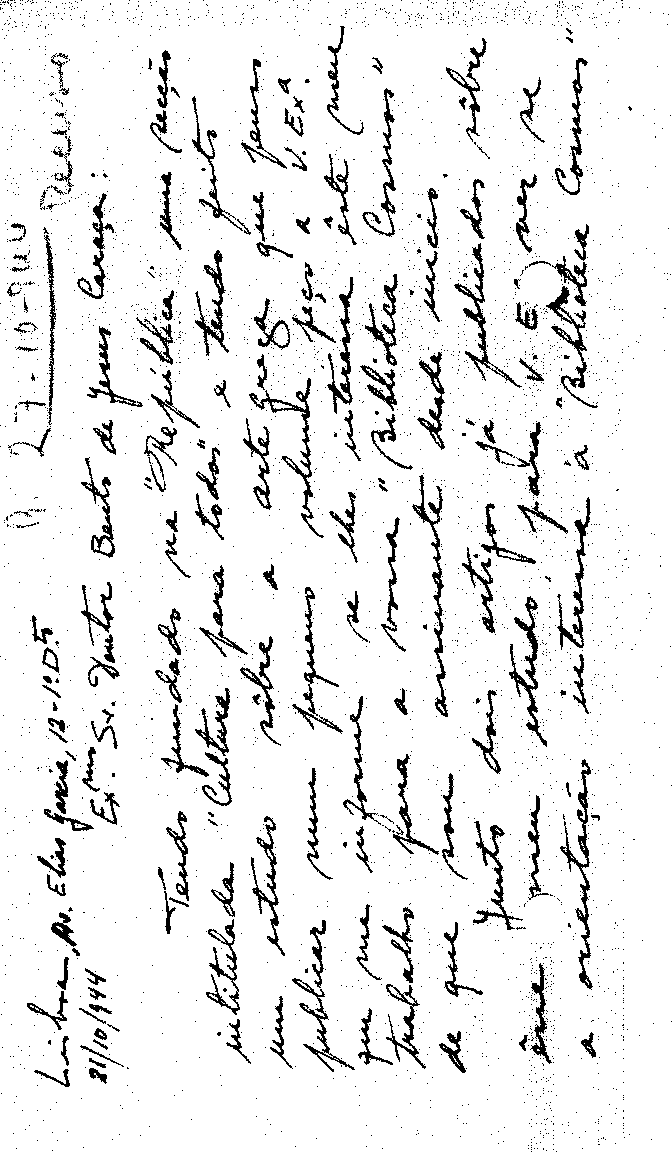 R. 27-10-944
Lisboa, Av. Elias Garcia, 12-1º Dtº
21/10/944
Exmo. Sr. Doutor Bento de Jesus Caraça:
Tendo fundado na "República" uma secção
intitulada "Cultura para todos" e tendo feito
um estudo sôbre a arte grega que penso
publicar num pequeno volume peço a V. Exª.
que me informe se lhes interessa êste meu
trabalho para a vossa "Biblioteca Cosmos"
de que sou assinante desde início.
Junto dois artigos já publicados sôbre
êsse meu estudo para V. Exª ver se
a orientação interessa à "Biblioteca Cosmos"